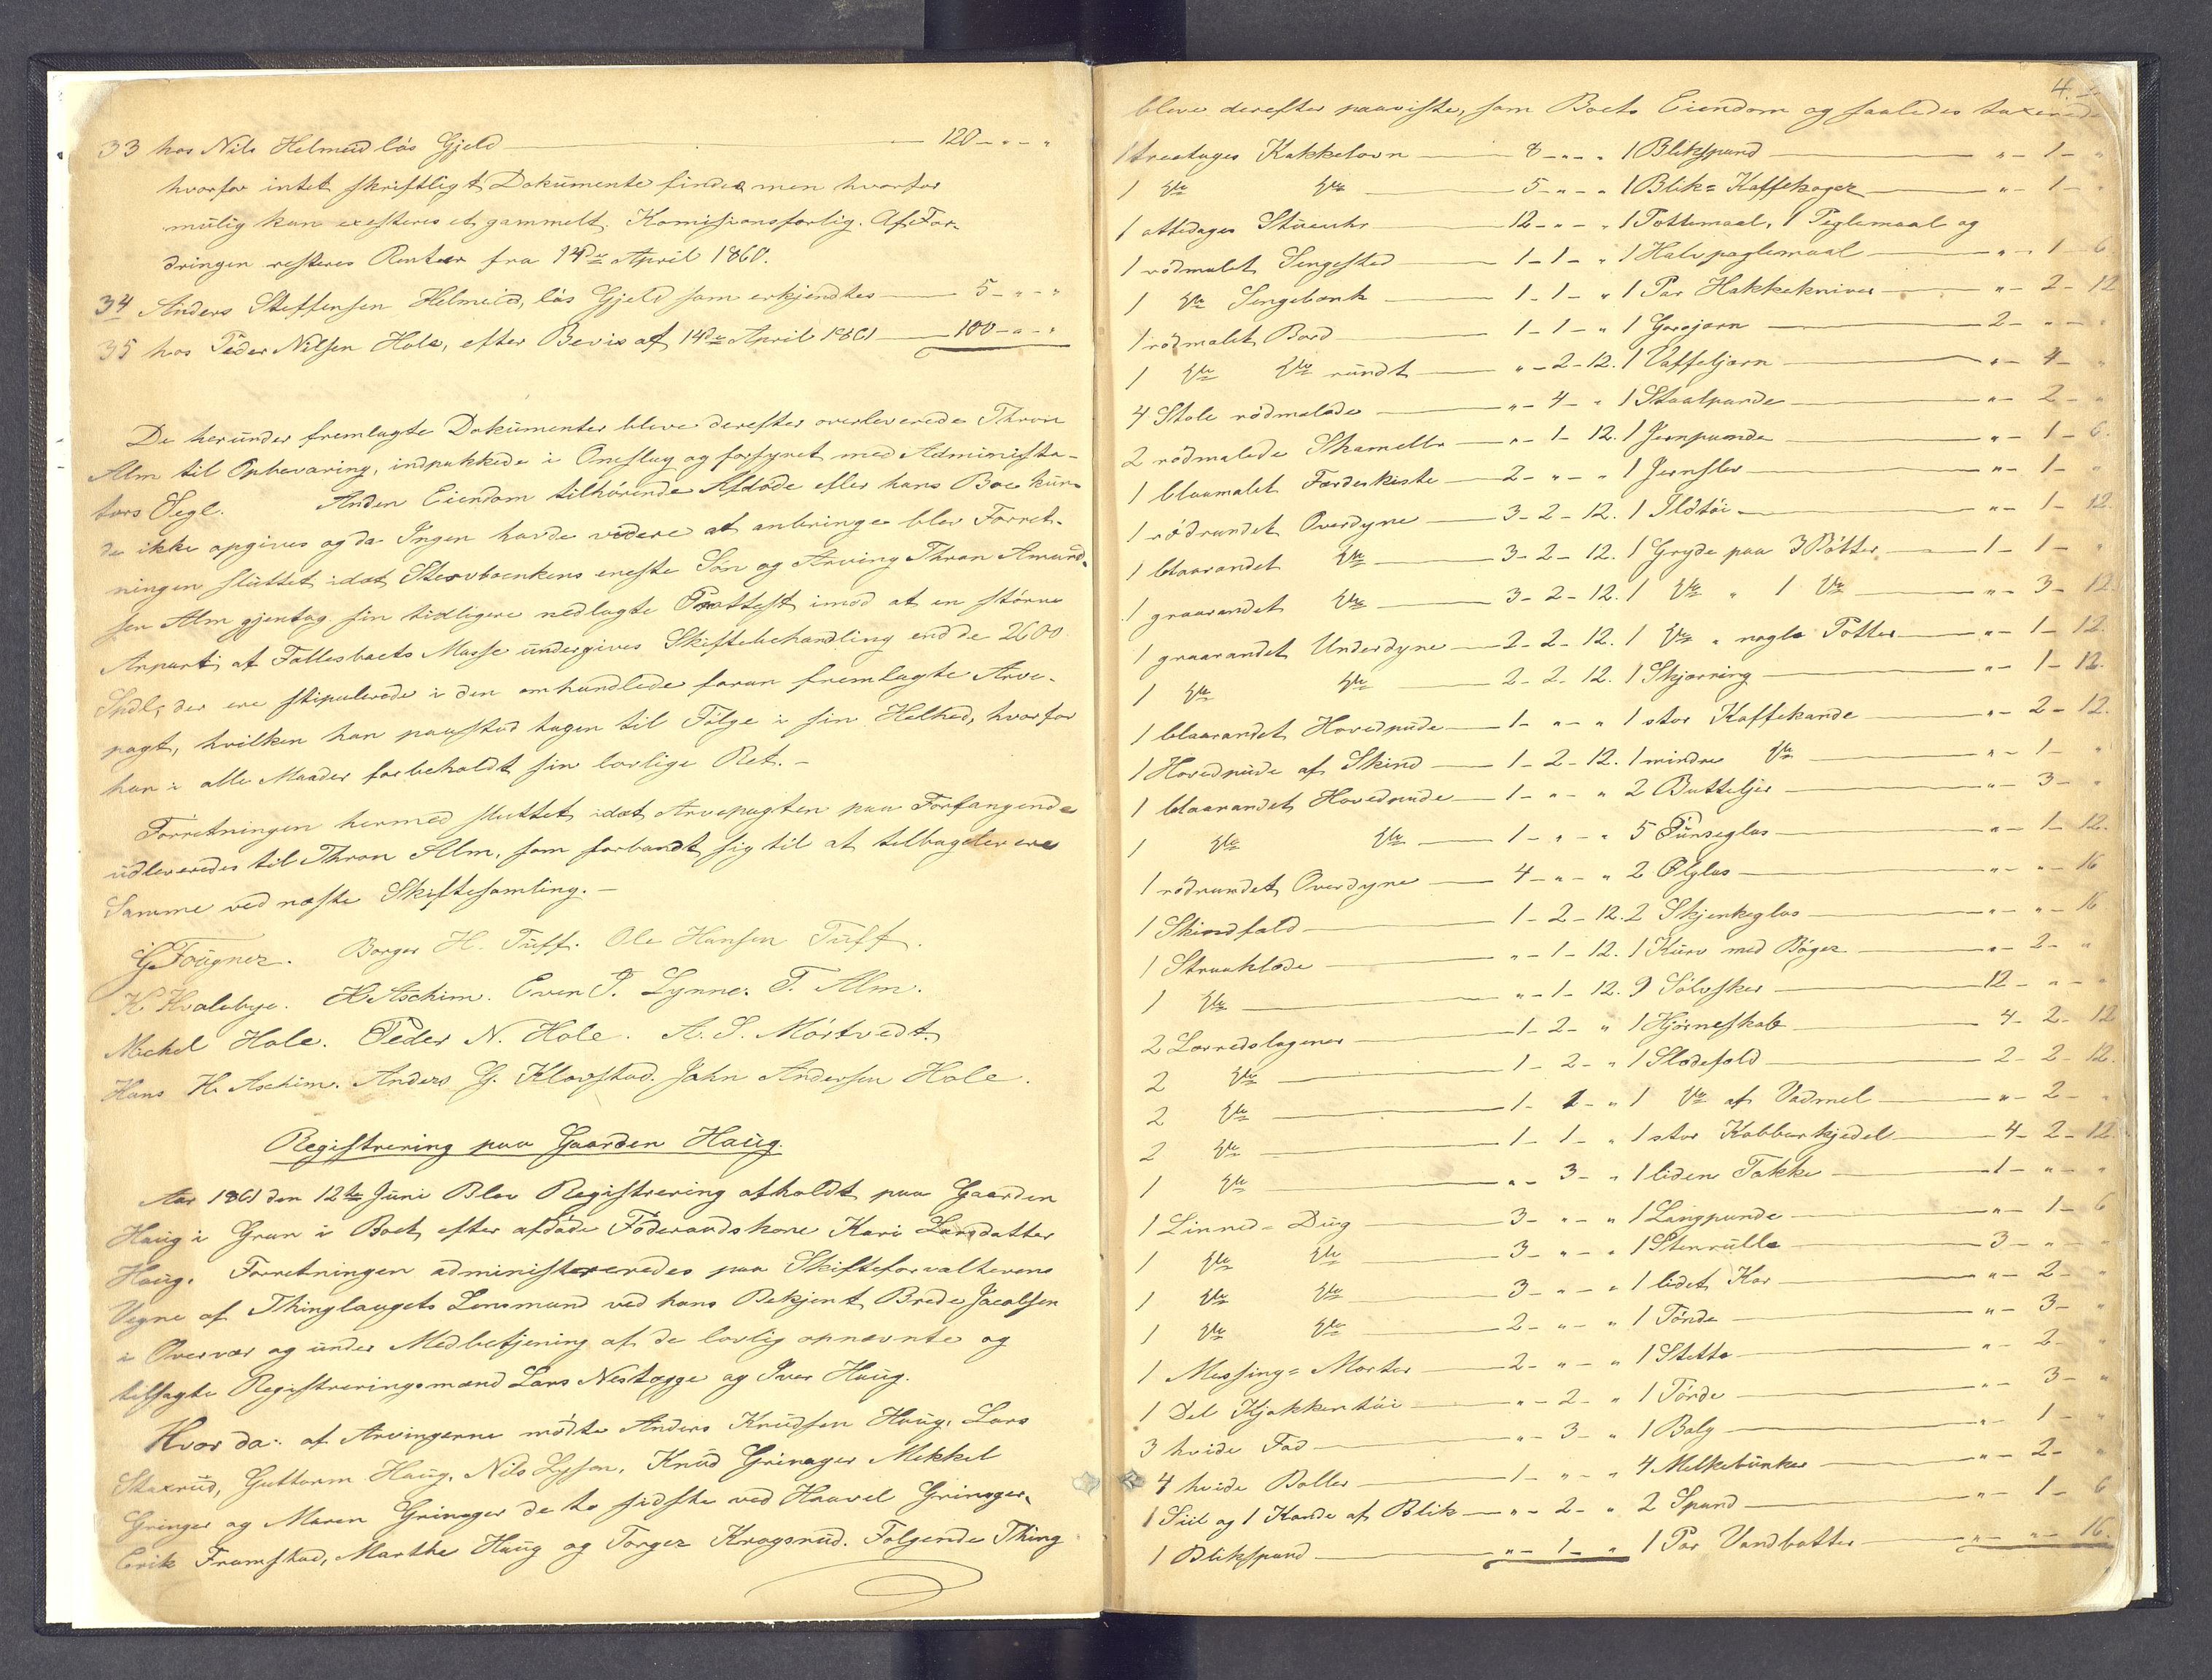 33 hos Nils Helmeid løs Gjeld — 120 - " - "
hvorfor intet skriftligt Dokumente findes men hvorfor
mulig kan exesteres et gammelt Komisionsforlig. Af For-
dringen resteres Renter fra 14de April 1860.
34 Anders Steffensen Helmeid, løs Gjeld som erkjendtes — 5 - " - "
35 hos Peder Nilsen Hole, efter Bevis af 14de April 1861 — 100 - " - "
De herunder fremlagte Dokumenter bleve derefter overleverede Thron
Alm til Opbevaring, indpakkede i Omslag og forsynet med Administra-
tors Segl. Anden Eiendom tilhørende Afdøde eller hans Boe kun-
de ikke opgives og da Ingen havde videre at anbringe blev Forret-
ningen sluttet idet Stervboenkens eneste Søn og Arving Thron Amund-
sen Alm gjentog sin tidligere nedlagte Prottest imod at en større
Anpart af Fællesboets Masse undergives Skiftebehandling end de 2600
Spdl, der ere stipulerede i den omhandlede foran fremlagte Arve-
pagt, hvilken han paastod tagen til Følge i sin Helhed, hvorfor
han i alle Maader forbeholdt sin lovlige Ret. -
Forretningen hermed sluttet idet Arvepagten paa Forlangende
udleveredes til Thron Alm, som forbandt sig til at tilbagelevere
Samme ved næste Skiftesamling. -
G. Fougner. Borger H. Tuff. Ole Hansen Tuff.
K Kvalebye. H Aschim. Even P. Lynne. T. Alm.
Michel Hole. Peder N. Hole. A. S. Mørtvedt.
Hans H. Aschim. Anders G. Klovstad. John Andersen Hole.
Registrering paa Gaarden Haug.
Aar 1861 den 12te Juni Blev Registrering afholdt paa Gaarden
Haug i Gran i Boet efter afdøde Føderaadskone Kari Larsdatter
Haug. Forretningen administreredes paa Skifteforvalterens
Vegne af Thinglaugets Lensmand ved hans Bekjent Brede Jacobsen
i Overvær og under Medbetjening af de lovlig opnævnte og
tilsagte Registreringsmænd Lars Nestegge og Iver Haug.
Hvor da: af Arvingerne mødte Anders Knudsen Haug, Lars
Staxrud, Guttorm Haug, Nils Hyson, Knud Grinager Mikkel
Gringer og Maren Grinager de to sidste ved Haavel Grinager,
Erik Framstad, Marthe Haug og Torger Kragsrud. Følgende Thing
4.
bleve derefter paaviste, som Boets Eiendom og saaledes taxerede
1 treetages Kakkelovn — 8 - " - " 1 Blikspand — " - 1 - "
1 do do — 5 - " - " 1 Blik= Kaffekoger — " - 1 - "
1 ottedages Stueuhr — 12 - " - " 1 Pottemaal, 1 Peglemaal og
1 rødmalet Sengested — 1 - 1 - " 1 Halvpaglemaal — " - 1 - 6
1 do Sengebænk — 1 - 1 - " 1 Par Hakkekniver — " - 2 - 12
1 rødmalet Bord — 1 - 1 - " 1 Gorojern — 2 - " - "
1 do do rundt — " - 2 - 12. 1 Vaffeljern — " - 4 - "
4 Stole rødmalede — " - 4 - " 1 Staalpande — " - 2 - "
2 rødmalede Skameller — " - 1 - 12. 1 Jernpande — " - 1 - 6.
1 blaamalet Færdeskiste — 2 - " - " 1 Jernslev — " - 1 - "
1 rødrandet Overdyne — 3 - 2 - 12. 1 Ildtøi — " - 1 - 12.
1 blaarandet do — 3 - 2 - 12. 1 Gryde paa 3 Pøtter — 1 - 1 - "
1 graarandet do — 3 - 2 - 12. 1 do " 1 do — " - 3 - 12.
1 graarandet Underdyne — 2 - 2 - 12. 1 do " nogle Potter — " - 1 - 12.
1 do do — 2 - 2 - 12. 1 Skjærring — " - 1 - 12.
1 blaarandet Hovedpude — 1 - " - " 1 stor Kaffekande — " - 2 - 12.
1 Hovedpude af Skind — 1 - 2 - 12. 1 mindre do — " - 1 - "
1 blaarandet Hovedpude — 1 - " - " 2 Butteljer — " - 3 - "
1 do do — 1 - " - " 5 Punseglas — " - 1 - 12.
1 rødrandet Overdyne — 4 - " - " 2 Ølglas — " - " - 16
1 Skindfæld — 1 - 2 - 12. 2 Skjenkeglas — " - " - 16
1 Straaklæde — " - 1 - 12. 1 Kurv med Bøger — " - 2 - "
1 do — " - 1 - 12. 9 Sølvskeer — 12 - " - "
2 Lærredslagener — 1 - 2 - " 1 Hjørneskab — 4 - 2 - 12
2 do — 1 - 2 - " 1 Slædefæld — 2 - 2 - 12.
2 do — 1 - 1 - " 1 do af Vadmel — " - 2 - "
2 do — 1 - 1 - " 1 stor Kobberkjedel — 4 - 2 - 12.
1 do — " - 3 - " 1 liden Takke — 1 - " - "
1 Linned - Dug — 3 - " - " 1 Langpande — " - 1 - 6
1 do do — 3 - " - " 1 Stenrulle — 3 - " - "
1 do do — 3 - " - " 1 lidet Kar — " - 2 - "
1 do do — 2 - " - " 1 Tønde — " - 3 - "
1 Messing= Morter — 2 - " - " 1 Stette — " - 2 - "
1 Del Kjøkkentøi — " - 2 - " 1 Tønde — " - 3 - "
3 hvide Fad — " - 3 - " 1 Balg — " - 1 - "
4 hvide Boller — 1 - " - " 4 Melkebunker — " - 2 - "
1 Siil og 1 Kande af Blik — " - 2 - " 2 Spand — " - 1 - 6
1 Blikspand — " - 1 - " 1 Par Vandbøtter — " - " - 16.